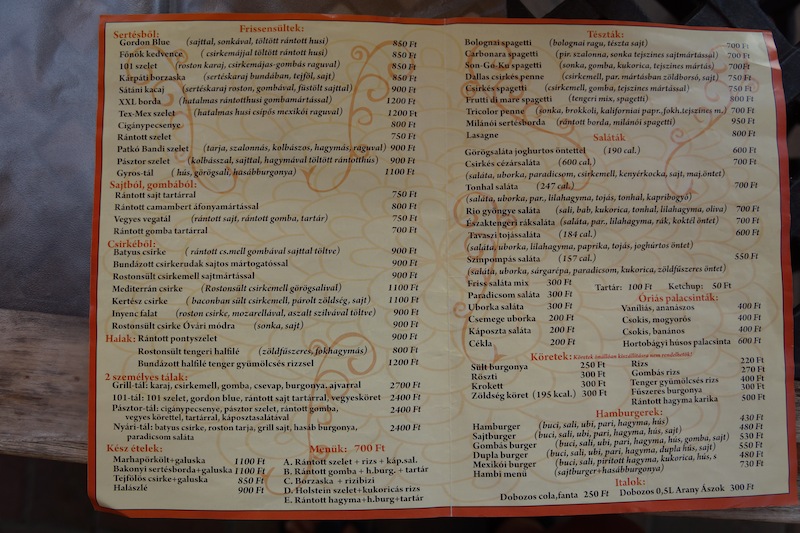 Frissensültek:
Sertésből:
Gordon Blue (sajttal, sonkával, töltött rántott husi) 850 Ft
Főnök kedvence (csirkemájjal töltött rántott husi) 850 Ft
101 szelet (roston karaj, csirkemájas-gombás raguval) 850 Ft
Kárpáti borzaska (sertéskaraj bundában, tejföl, sajt) 850 Ft
Sátáni kacaj (sertéskaraj roston, gombával, füstölt sajttal) 900 Ft
XXL borda (hatalmas rántotthusi gombamártással) 1200 Ft
Tex-Mex szelet (hatalmas husi csípős mexikói raguval) 1200 Ft
Cigánypecsenye 800 Ft
Rántott szelet 750 Ft
Patkó Bandi szelet (tarja, szalonnás, kolbászos, hagymás, raguval) 900 Ft
Pásztor szelet (kolbásszal, sajttal, hagymával töltött rántotthús) 900 Ft
Gyros-tál (hús, görögsali, hasábburgonya) 1100 Ft
Sajtból, gombából:
Rántott sajt tartárral 750 Ft
Rántott camambert áfonyamártással 800 Ft
Vegyes vegatál (rántott sajt, rántott gomba, tartár) 750 Ft
Rántott gomba tartárral 700 Ft
Csirkéből:
Batyus csirke (rántott cs.mell gombával sajttal töltve) 900 Ft
Bundázott csirkerudak sajtos mártogatóssal 900 Ft
Rostonsült csirkemell sajtmártással 900 Ft
Mediterrán csirke (Rostonsült csirkemell görögsalival) 1100 Ft
Kertész csirke (baconban sült csirkemell, párolt zöldség, sajt) 1100 Ft
Inyenc falat (roston csirke, mozarellával, aszalt szilvával töltve) 900 Ft
Rostonsült csirke Óvári módra (sonka, sajt) 900 Ft
Halak: Rántott pontyszelet 900 Ft
Rostonsült tengeri halfilé (zöldfűszeres, fokhagymás) 800 Ft
Bundázott halfilé tenger gyümölcsés rizzsel 1200 Ft
2 személyes tálak:
Grill-tál: karaj, csirkemell, gomba, csevap, burgonya, ajvarral 2700 Ft
101-tál: 101 szelet, gordon blue, rántott sajt tartárral, vegyesköret 2400 Ft
Pásztor-tál: cigánypecsenye, pásztor szelet, rántott gomba, 2400 Ft
vegyes körettel, tartárral, káposztasalátával
Nyári-tál: batyus csirke, roston tarja, grill sajt, hasáb burgonya, 2400 Ft
paradicsom saláta
Kész ételek:
Marhapörkölt+galuska 1100 Ft
Bakonyi sertésborda+galuska 1100 Ft
Tejfölös csirke+galuska 850 Ft
Halászlé 900 Ft
Menük: 700 Ft
A. Rántott szelet + rizs + káp.sal.
B. Rántott gomba + h.burg. + tartár
C. Borzaska + rizibizi
D. Holstein szelet+kukoricás rizs
E. Rántott hagyma+h.burg+tartár
Tészták:
Bolognai spagetti (bolognai ragu, tészta sajt) 700 Ft
Carbonara spagetti (pir. szalonna, sonka tejszines sajtmártással) 700 Ft
Son-Gó-Ku spagetti (sonka, gomba, kukorica, tejszínes mártás) 700Ft
Dallas csirkés penne (csirkemell, par. mártásban zöldborsó, sajt) 750 Ft
Csirkés spagetti (csirkemell, gomba, tejszínes mártással) 750 Ft
Frutti di mare spagetti (tengeri mix, spagetti) 800 Ft
Tricolor penne (sonka, brokkoli, kaliforniai papr.,fokh.tejszínes m.) 700 Ft
Milánói sertésborda (rántott borda, milánói spagetti) 950 Ft
Lasagne 800 Ft
Saláták
Görögsaláta joghurtos öntettel (190 cal.) 600 Ft
Csirkés cézársaláta (600 cal.) 700 Ft
(saláta, uborka, paradicsom, csirkemell, kenyérkocka, sajt, maj.öntet)
Tonhal saláta (247 cal.) 700 Ft
(saláta, uborka, par., lilahagyma, tojás, tonhal, kapribogyó)
Rio gyöngye saláta (sali, bab, kukorica, tonhal, lilahagyma, oliva) 700 Ft
Északtengeri ráksaláta (saláta, par., lilahagyma, rák, koktél öntet) 700 Ft
Tavaszi tojássaláta (184 cal.) 600 Ft
(saláta, uborka, lilahagyma, paprika, tojás, joghurtos öntet)
Színpompás saláta (157 cal.) 550 Ft
(saláta, uborka, sárgarépa, paradicsom, kukorica, zöldfűszeres öntet)
Friss saláta mix 300 Ft
Paradicsom saláta 300 Ft
Uborka saláta 300 Ft
Csemege uborka 200 Ft
Káposzta saláta 200 Ft
Cékla 200 Ft
Tartár: 100 Ft Ketchup: 50 Ft
Óriás palacsinták:
Vaníliás, ananászos 400 Ft
Csokis, mogyorós 400 Ft
Csokis, banános 400 Ft
Hortobágyi húsos palacsinta 600 Ft
Köretek: Köretek önállóan kiszállításra nem rendelhetők!
Sült burgonya 250 Ft
Röszti 300 Ft
Krokett 300 Ft
Zöldség köret (195 kcal.) 300 Ft
Rizs 220 Ft
Gombás rizs 270 Ft
Tenger gyümölcsés rizs 400 Ft
Fűszeres burgonya 300 Ft
Rántott hagyma karika 500 Ft
Hamburgerek:
Hamburger (buci, sali, ubi, pari, hagyma, hús) 430 Ft
Sajtburger (buci, sali, ubi, pari, hagyma, hús, sajt) 480 Ft
Gombás burger (buci, sali, ubi, pari, hagyma, hús, gomba, sajt) 530 Ft
Dupla burger (buci, sali, ubi, pari, hagyma, dupla hús, sajt) 550 Ft
Mexikói burger (buci, sali, pirított hagyma, kukorica, hús, s 480 Ft
Hambi menü (sajtburger+hasábburgonya) 730 Ft
Italok:
Dobozos cola,fanta 250 Ft Dobozos 0,5L Arany Ászok 300 Ft